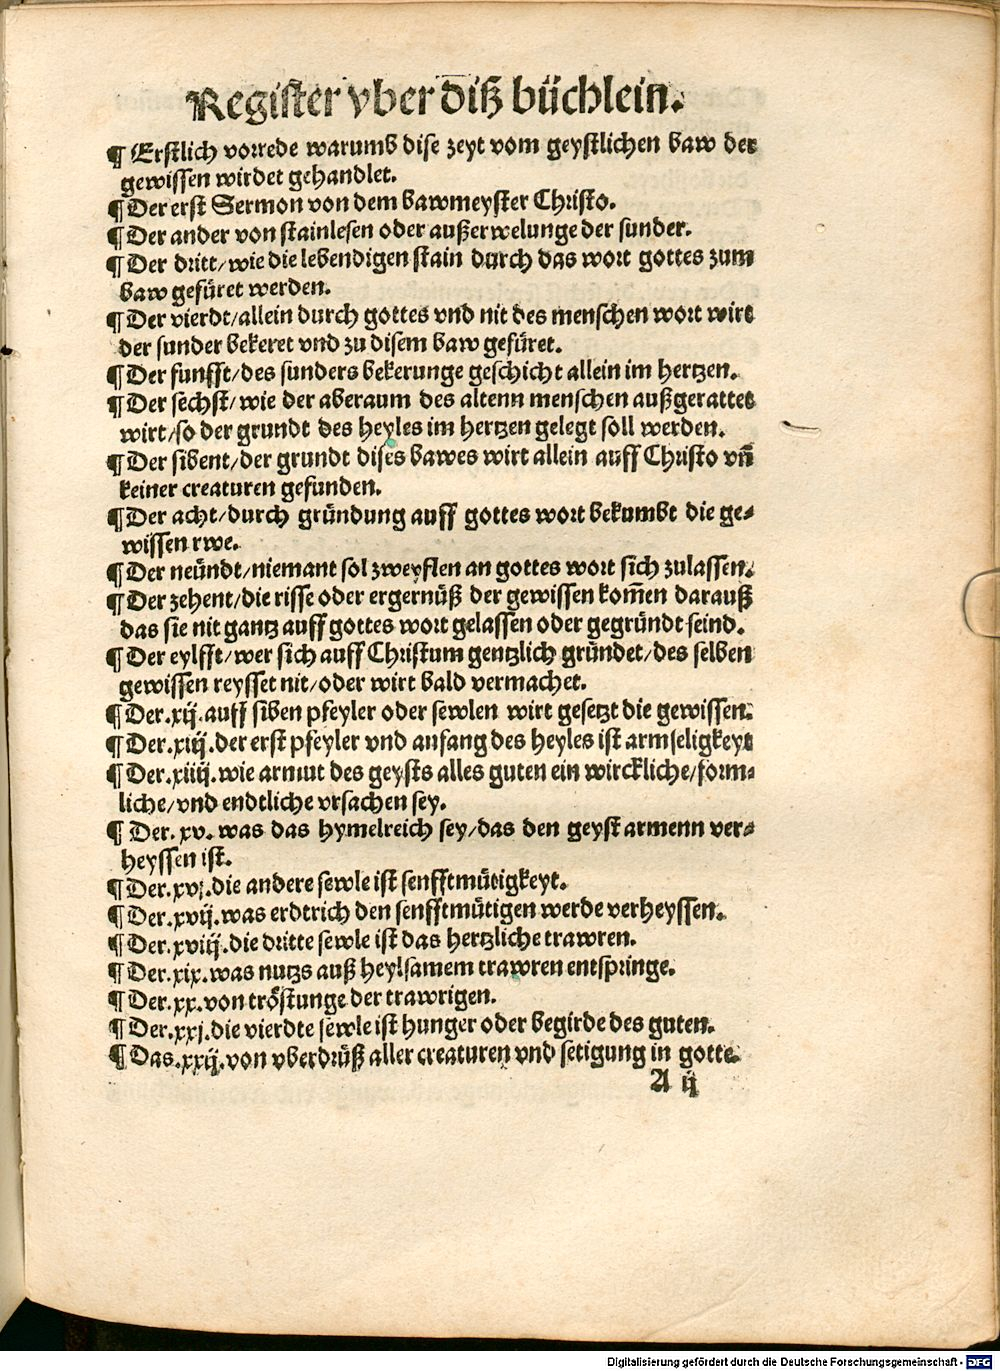 Register vber diß büchlein.
¶ Erstlich vorrede warumb dise zeyt vom geystlichen baw der
gewissen wirdet gehandlet.
¶ Der erst Sermon von dem bawmeyster Christo.
¶ Der ander von stainlesen oder außerwelunge der sunder.
¶ Der dritt/wie die lebendigen stain durch das wort gottes zum
baw gefüret werden.
¶ Der vierdt/allein durch gottes vnd nit des menschen wort wirt
der sunder bekeret vnd zu disem baw gefüret.
¶ Der funfft/des sunders bekerunge geschicht allein im hertzen.
¶ Der sechst/wie der aberaum des altenn menschen außgerattet
wirt/so der grundt des heyles im hertzen gelegt soll werden.
¶ Der sibent/der grundt dises bawes wirt allein auff Christo vn̄
keiner creaturen gefunden.
¶ Der acht/durch gründung auff gottes wort bekumbt die ge⸗
wissen rwe.
¶ Der neündt/niemant sol zweyflen an gottes wort sich zulassen.
¶ Der zehent/die risse oder ergernüß der gewissen kom̄en darauß
das sie nit gantz auff gottes wort gelassen oder gegründt seind.
¶ Der eylfft/wer sich auff Christum gentzlich gründet/des selben
gewissen reysset nit/oder wirt bald vermachet.
¶ Der.xij.auff siben pfeyler oder sewlen wirt gesetzt die gewissen.
¶ Der.xiij.der erst pfeyler vnd anfang des heyles ist armseligkeyt
¶ Der.xiiij.wie armut des geysts alles guten ein wirckliche/form⸗
liche/vnd endtliche vrsachen sey.
¶ Der.xv.was das hymelreich sey/das den geyst armenn ver⸗
heyssen ist.
¶ Der.xvj.die andere sewle ist senfftmütigkeyt.
¶ Der.xvij.was erdtrich den senfftmütigen werde verheyssen.
¶ Der.xviij.die dritte sewle ist das hertzliche trawren.
¶ Der.xix.was nutzs auß heylsamem trawren entspringe.
¶ Der.xx.von tröstunge der trawrigen.
¶ Der.xxj.die vierdte sewle ist hunger oder begirde des guten.
¶ Das.xxij.von vberdrüß aller creaturen vnd setigung in gotte.
A ij
Digitalisierung gefördert durch die Deutsche Forschungsgemeinschaft - DFG